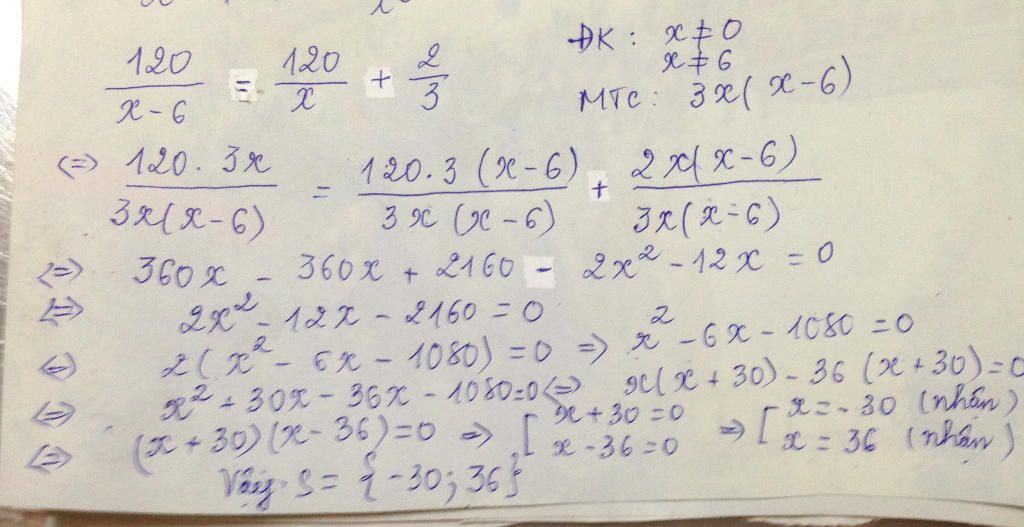 120/(x-6) = 120/x + 2/3
ĐK: x ≠ 0
x ≠ 6
MTC: 3x(x-6)
<=> 120.3x/3x(x-6) = 120.3(x-6)/3x(x-6) + 2x(x-6)/3x(x-6)
<=> 360x - 360x + 2160 - 2x² - 12x = 0
<=> 2x² - 12x - 2160 = 0
<=> 2(x² - 6x - 1080) = 0 => x² - 6x - 1080 = 0
<=> x² + 30x - 36x - 1080 = 0 <=> x(x + 30) - 36(x + 30) = 0
<=> (x + 30)(x - 36) = 0 => [ x + 30 = 0 => [ x = -30 (nhận)
x - 36 = 0 x = 36 (nhận)
Vậy S = {-30; 36}